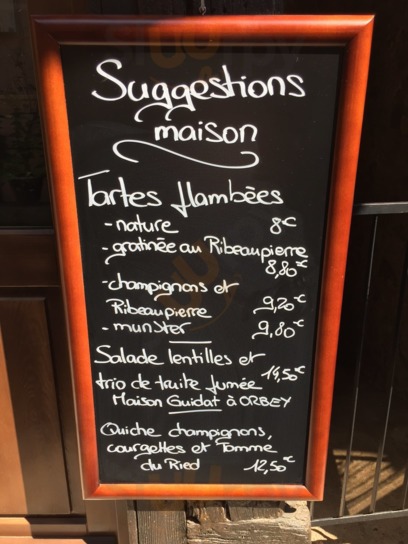 Suggestions
maison
Tartes flambées
- nature 8€
- gratinée au Ribeaupierre
8,80€
- champignons et
Ribeaupierre 9,20€
- munster 9,80€
Salade lentilles et
14,50€
trio de truite fumée
Maison Guidat à ORBEY
Quiche champignons,
courgettes et Tomme
du Ried 12,50€